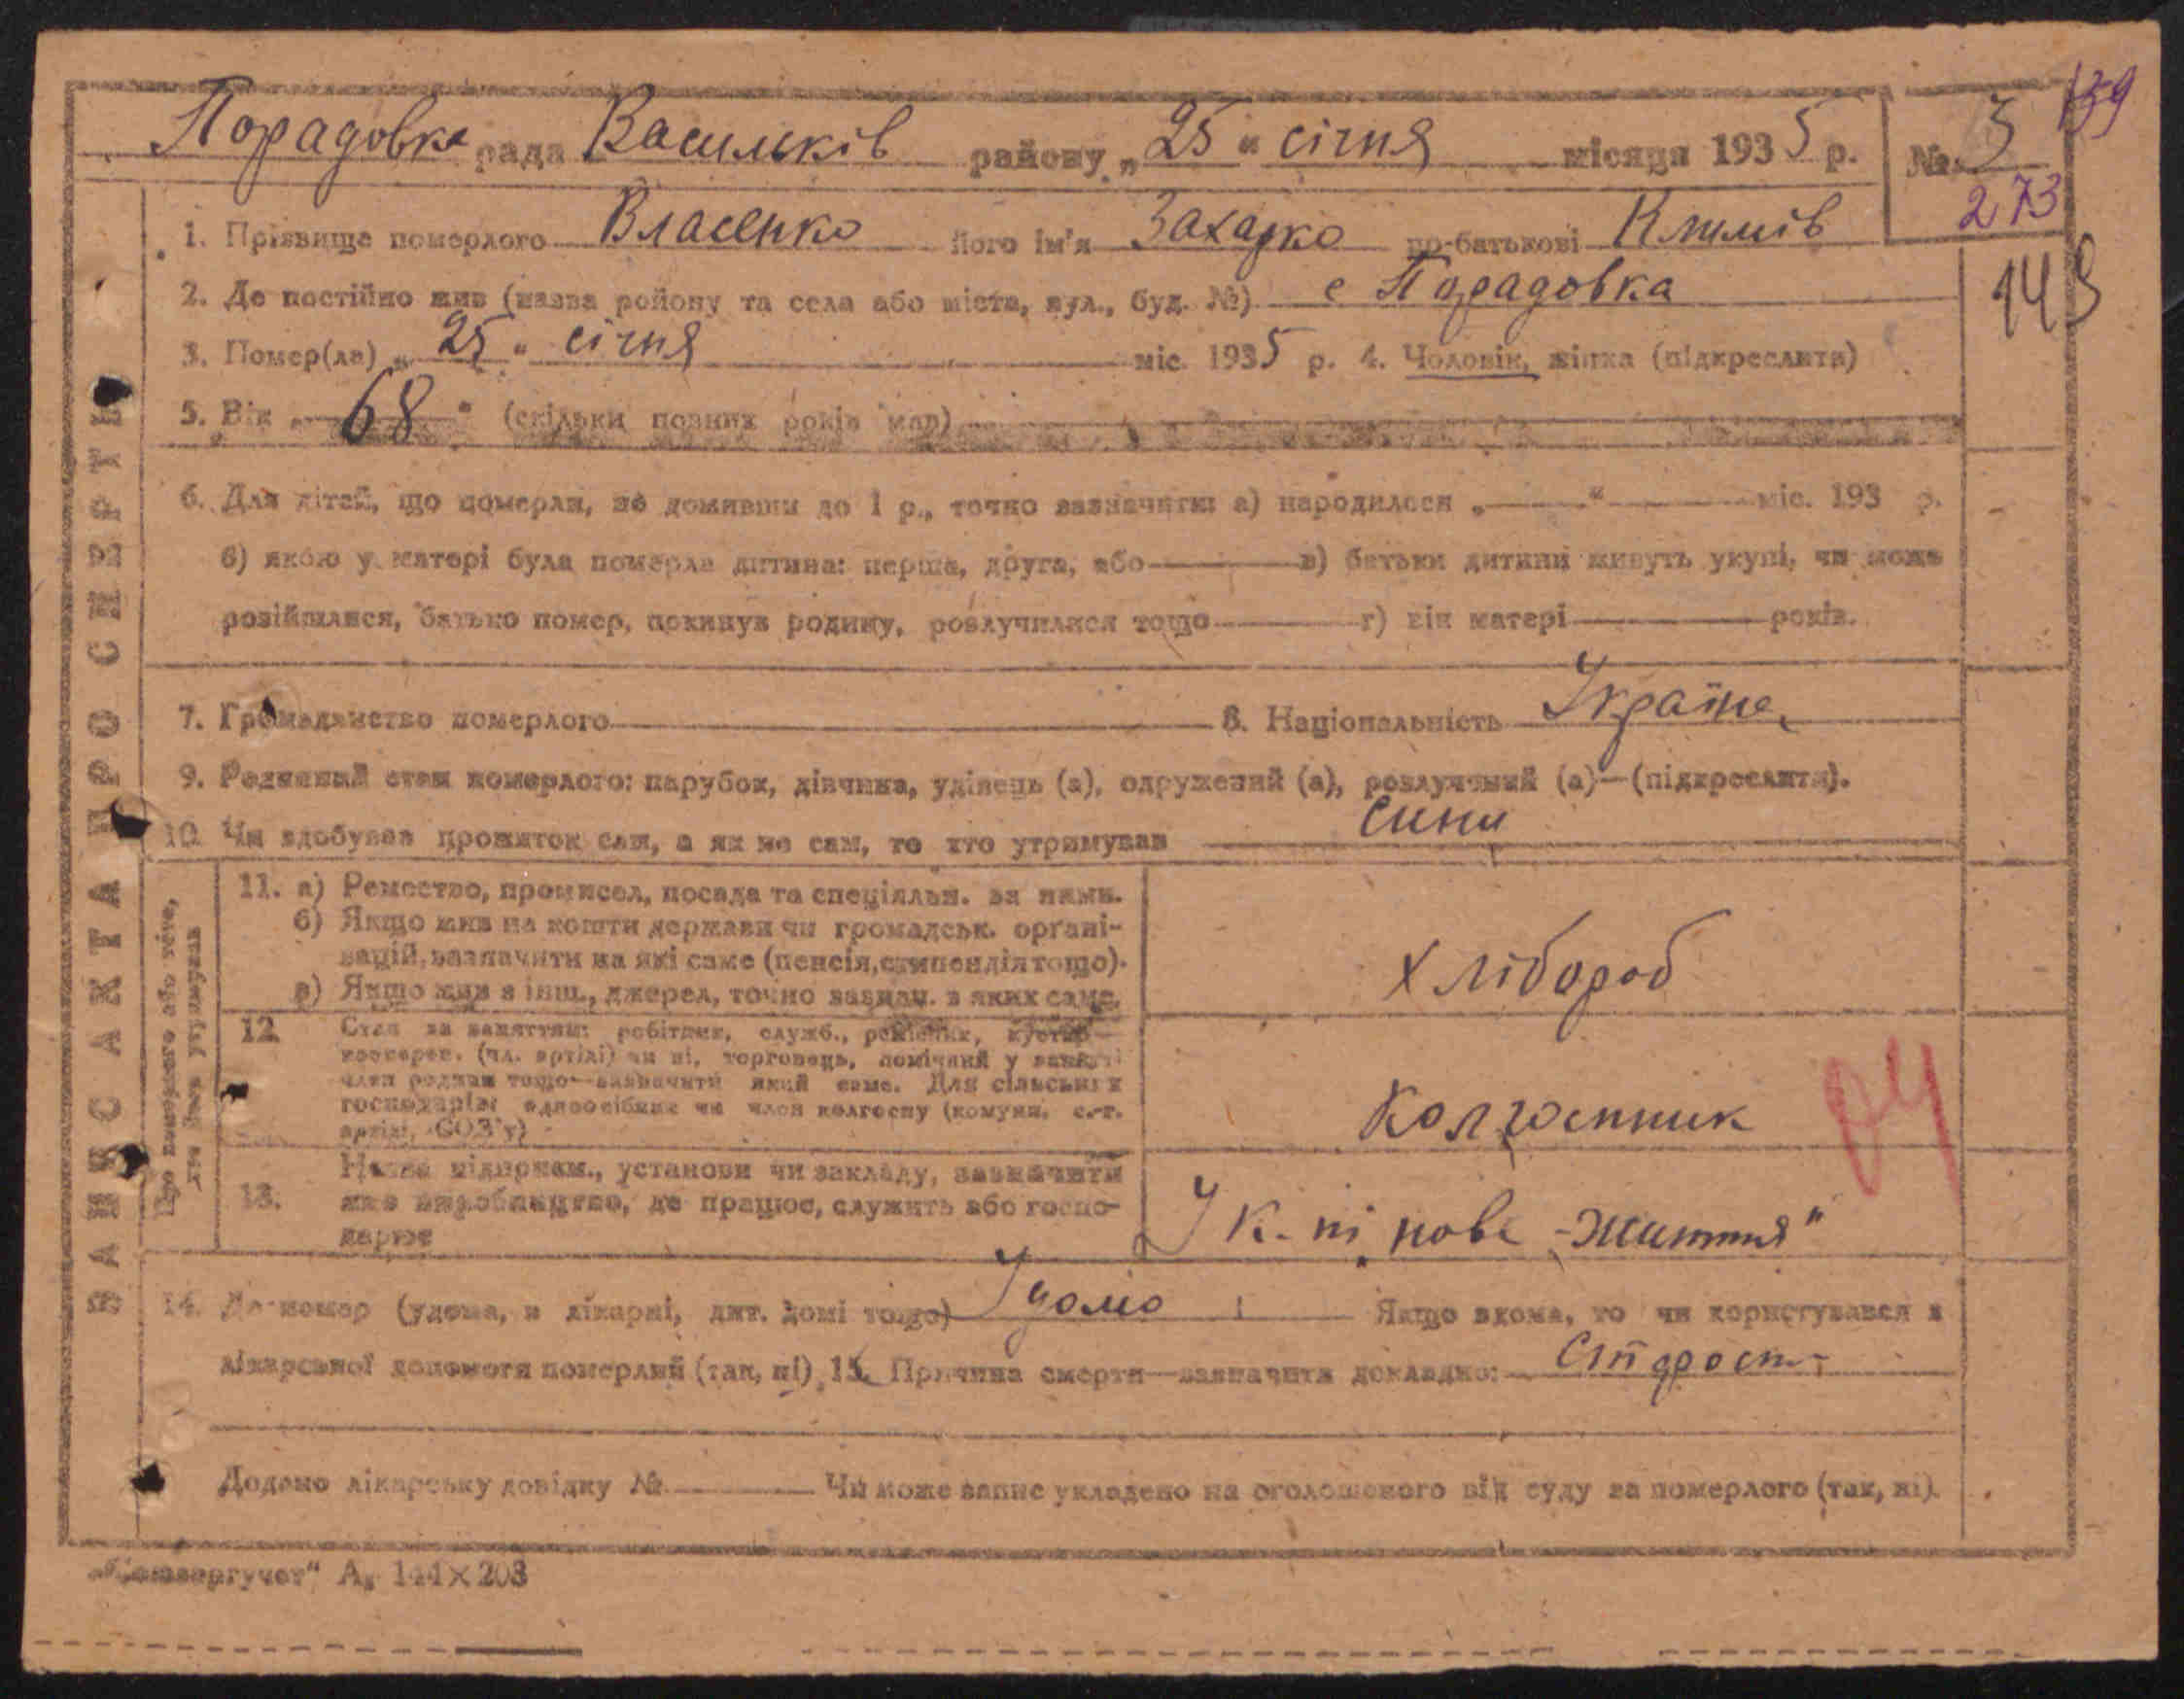 139
Порадовка рада Васильків району „25“ січня місяця 1935 р. № 3
273
1. Прізвище померлого Власенко його ім'я Захарко по-батькові Климів
143
2. Де постійно жив (назва району та села або міста, вул., буд. №) с Порадовка
3. Помер(ла) „25“ січня міс. 1935 р. 4. Чоловік, жінка (підкреслити)
5. Вік „68“ (скільки повних років мав)
6. Для дітей, що померли, не доживши до 1 р., точно зазначити: а) народилося „ “ міс. 193 р.
б) якою у матері була померла дитина: перша, друга, або в) батьки дитини живуть укупі, чи може
розійшлися, батько помер, покинув родину, розлучилися тощо г) вік матері років.
7. Громадянство померлого 8. Національність Україне
9. Родинний стан померлого: парубок, дівчина, удівець (а), одружений (а), розлучений (а)—(підкреслити).
10. Чи здобував прожиток сам, а як не сам, то хто утримував сини
ЗАПИС АКТА ПРО СМЕРТЬ
Про померлого або того, хто його утримував
11. а) Ремество, промисел, посада та спеціяльн. за ними.
б) Якщо жив на кошти держави чи громадськ. орґані-
зацій, зазначити на які саме (пенсія, стипендія тощо).
в) Якщо жив з інш., джерел, точно зазнач. з яких саме.
хлібороб
12. Стан за заняттям: робітник, служб., ремісник, кустар—
кооперов. (чл. артілі) чи ні, торговець, помічний у занятті
член родини тощо—зазначити який саме. Для сільських
господарів: одноосібник чи член колгоспу (комуни, с.-г.
артілі, СОЗ'у)
Колгоспник
04
13. Назва підприєм., установи чи закладу, зазначити
яке виробництво, де працює, служить або госпо-
дарює
У к-пі нове „Життя“
14. Де помер (удома, в лікарні, дит. домі тощо) Удома Якщо вдома, то чи користувався з
лікарської допомоги померлий (так, ні) 15. Причина смерти—зазначити докладно: Старость
Додано лікарську довідку № Чи може запис укладено на оголошеного від суду за померлого (так, ні).
„Союзоргучет“ А₅ 144×203